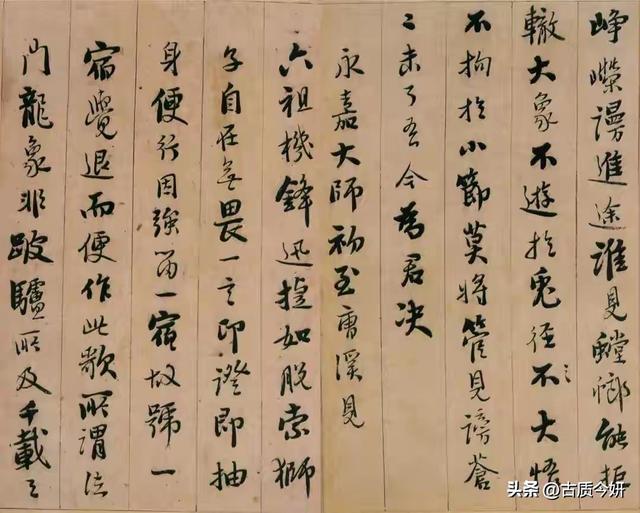 崢嶸謾進途誰見螳螂能拒
轍大象不遊於兔徑不大悟
不拘於小節莫將管見謗蒼
〻未了吾今為君決
永嘉大師初至曹溪見
六祖機鋒迅捷如脫索獅
子自在無畏一言即證即抽
身便行因強留一宿故號一
宿覺退而便作此歌所謂法
門龍象非跛驢所及千載之
头条 @古质今妍